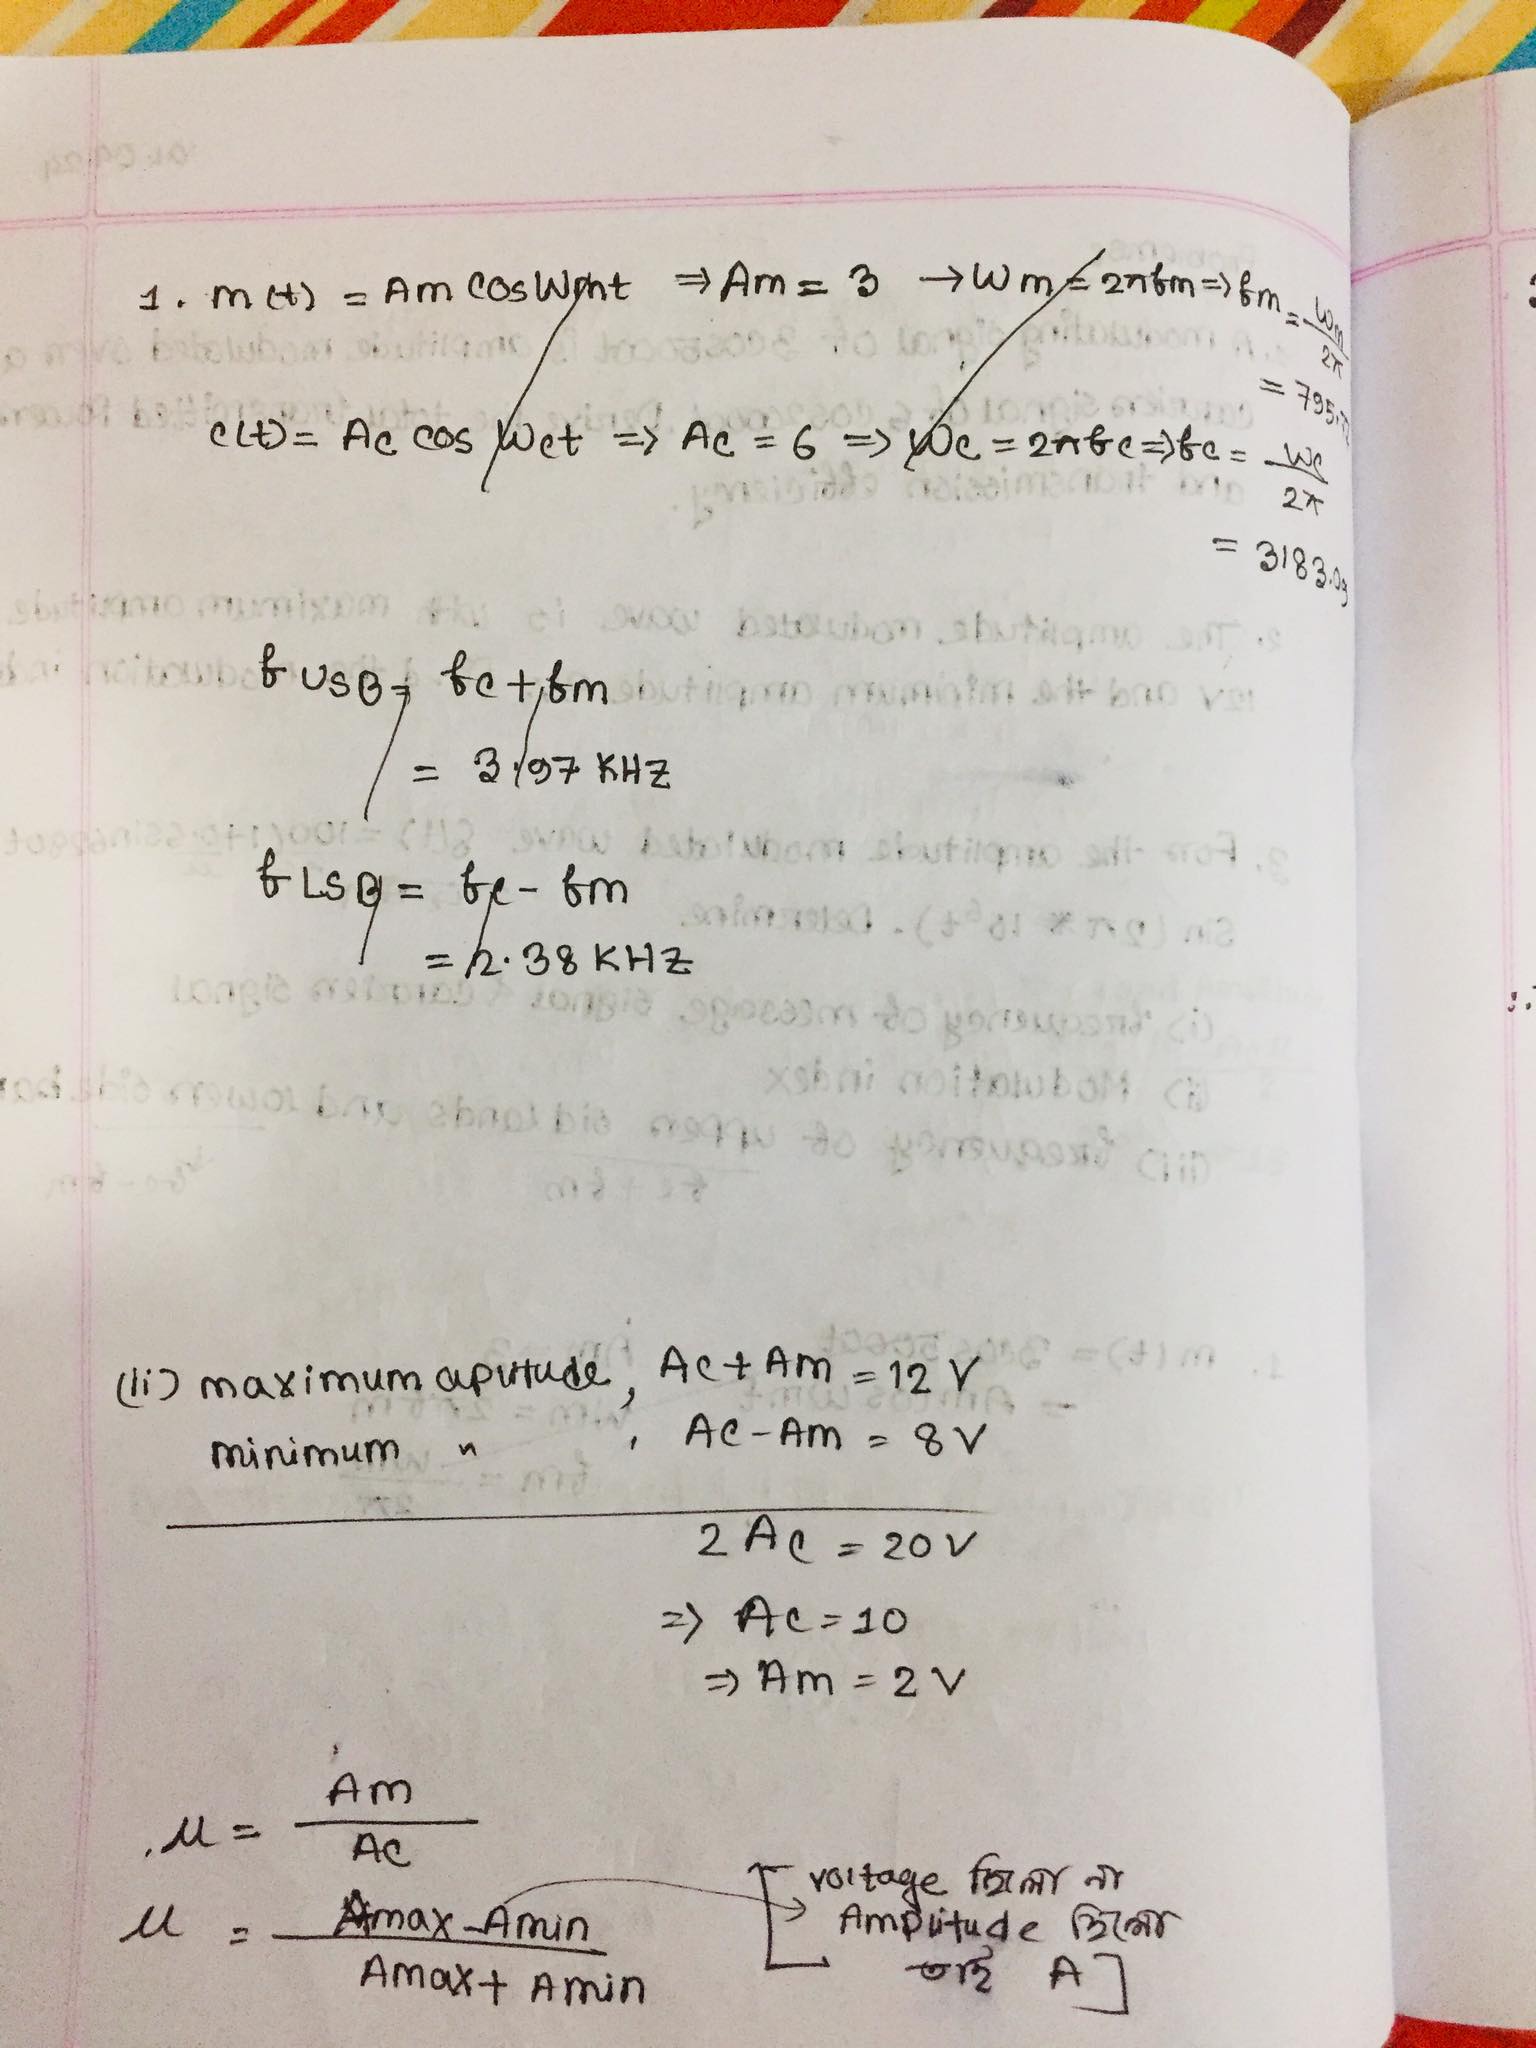 1. m(t) = Am cosWmt ⇒ Am = 3 → Wm = 2πfm ⇒ fm = Wm/2π
= 795.
c(t) = Ac cos Wct ⇒ Ac = 6 ⇒ Wc = 2πfc ⇒ fc = Wc/2π
= 3183.09
f USB = fc + fm
= 3.97 KHZ
f LSB = fc - fm
= 2.38 KHZ
(ii) maximum aplitude, Ac + Am = 12 V
minimum " , Ac - Am = 8 V
2 Ac = 20 V
⇒ Ac = 10
⇒ Am = 2 V
μ = Am/Ac
μ = Amax - Amin / Amax + Amin
[voltage ছিলো না
Amplitude ছিলো
তাই A]